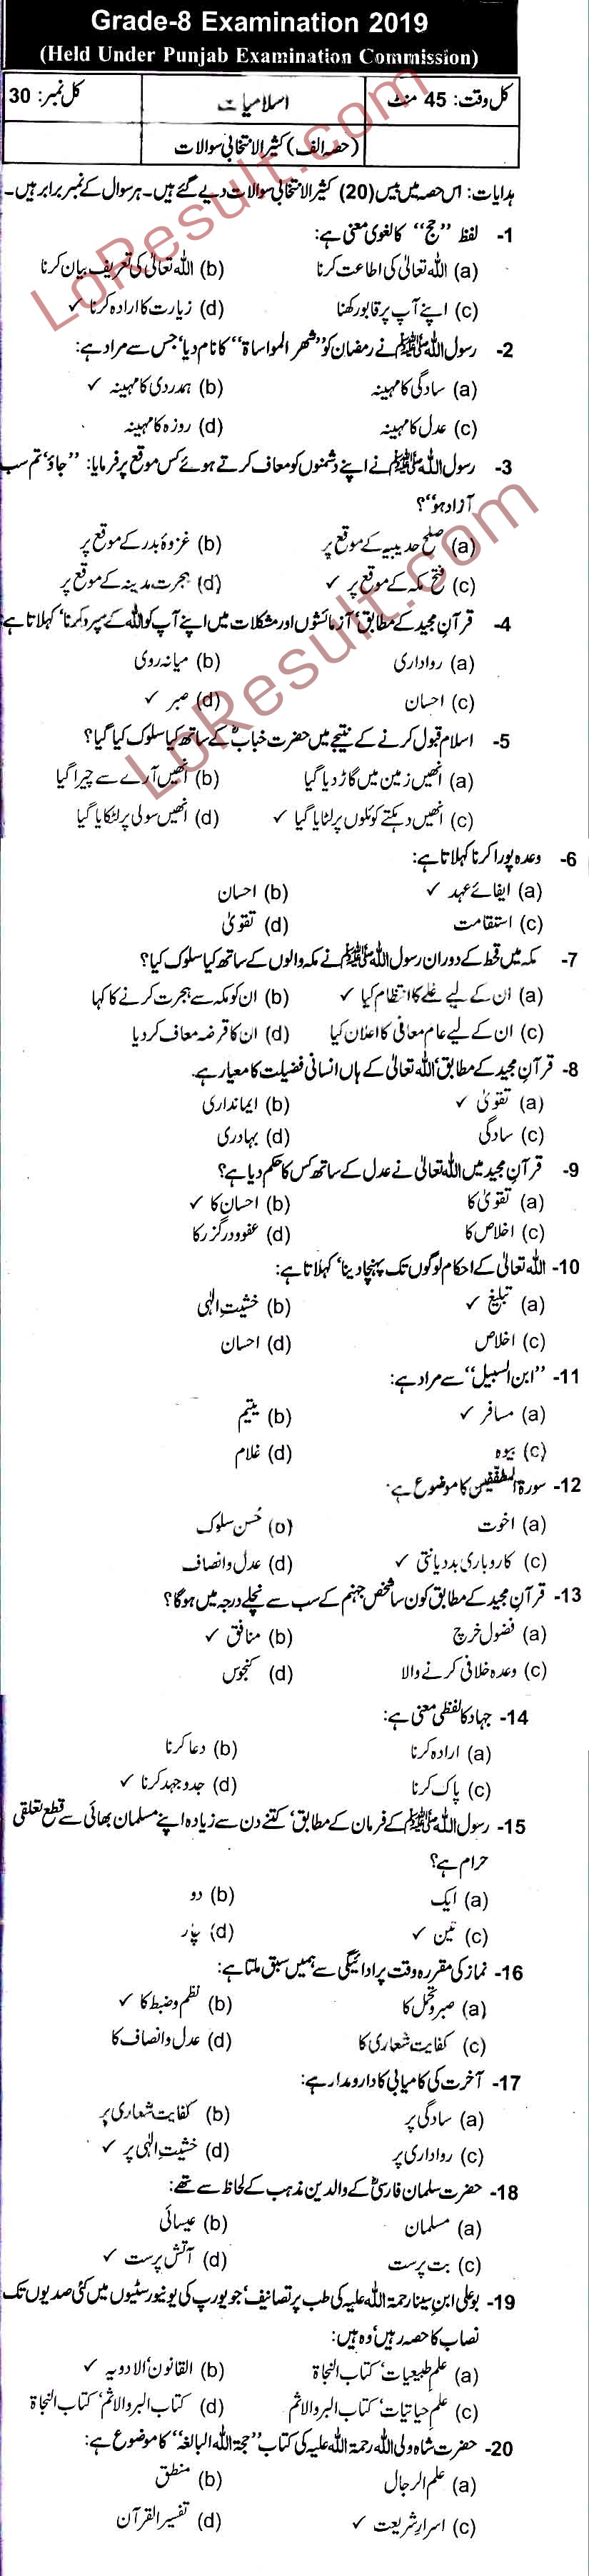 Grade-8 Examination 2019
(Held Under Punjab Examination Commission)
کل وقت: 45 منٹ اسلامیات کل نمبر: 30
(حصہ الف) کثیر الانتخابی سوالات
ہدایات: اس حصہ میں بیس (20) کثیر الانتخابی سوالات دیے گئے ہیں۔ ہر سوال کے نمبر برابر ہیں۔
1- لفظ ”حج“ کا لغوی معنی ہے:
(a) اللہ تعالیٰ کی اطاعت کرنا (b) اللہ تعالیٰ کی تعریف بیان کرنا
(c) اپنے آپ پر قابو رکھنا (d) زیارت کا ارادہ کرنا ✓
2- رسول اللہ ﷺ نے رمضان کو ”شھر المواساۃ“ کا نام دیا‘ جس سے مراد ہے:
(a) سادگی کا مہینہ (b) ہمدردی کا مہینہ ✓
(c) عدل کا مہینہ (d) روزہ کا مہینہ
3- رسول اللہ ﷺ نے اپنے دشمنوں کو معاف کرتے ہوئے کس موقع پر فرمایا: ”جاؤ‘ تم سب
آزاد ہو“؟
(a) صلح حدیبیہ کے موقع پر (b) غزوۂ بدر کے موقع پر
(c) فتح مکہ کے موقع پر ✓ (d) ہجرت مدینہ کے موقع پر
4- قرآن مجید کے مطابق‘ آزمائشوں اور مشکلات میں اپنے آپ کو اللہ کے سپرد کرنا‘ کہلاتا ہے
(a) رواداری (b) میانہ روی
(c) احسان (d) صبر ✓
5- اسلام قبول کرنے کے نتیجے میں حضرت خبابؓ کے ساتھ کیا سلوک کیا گیا؟
(a) انھیں زمین میں گاڑ دیا گیا (b) انھیں آرے سے چیرا گیا
(c) انھیں دہکتے کوئلوں پر لٹایا گیا ✓ (d) انھیں سولی پر لٹکایا گیا
6- وعدہ پورا کرنا کہلاتا ہے:
(a) ایفائے عہد ✓ (b) احسان
(c) استقامت (d) تقویٰ
7- مکہ میں قحط کے دوران رسول اللہ ﷺ نے مکہ والوں کے ساتھ کیا سلوک کیا؟
(a) ان کے لیے غلے کا انتظام کیا ✓ (b) ان کو مکہ سے ہجرت کرنے کا کہا
(c) ان کے لیے عام معافی کا اعلان کیا (d) ان کا قرضہ معاف کر دیا
8- قرآنِ مجید کے مطابق‘ اللہ تعالیٰ کے ہاں انسانی فضیلت کا معیار ہے۔
(a) تقویٰ ✓ (b) ایمانداری
(c) سادگی (d) بہادری
9- قرآنِ مجید میں اللہ تعالیٰ نے عدل کے ساتھ کس کا حکم دیا ہے؟
(a) تقویٰ کا (b) احسان کا ✓
(c) اخلاص کا (d) عفو و درگزر کا
10- اللہ تعالیٰ کے احکام لوگوں تک پہنچا دینا‘ کہلاتا ہے:
(a) تبلیغ ✓ (b) خشیتِ الٰہی
(c) اخلاص (d) احسان
11- ”ابن السبیل“ سے مراد ہے:
(a) مسافر ✓ (b) یتیم
(c) بیوہ (d) غلام
12- سورۃ المطففین کا موضوع ہے۔
(a) اخوت (b) حُسنِ سلوک
(c) کاروباری بددیانتی ✓ (d) عدل و انصاف
13- قرآن مجید کے مطابق کون سا شخص جہنم کے سب سے نچلے درجہ میں ہوگا؟
(a) فضول خرچ (b) منافق ✓
(c) وعدہ خلافی کرنے والا (d) کنجوس
14- جہاد کا لفظی معنی ہے:
(a) ارادہ کرنا (b) دعا کرنا
(c) پاک کرنا (d) جدوجہد کرنا ✓
15- رسول اللہ ﷺ کے فرمان کے مطابق‘ کتنے دن سے زیادہ اپنے مسلمان بھائی سے قطع تعلقی
حرام ہے؟
(a) ایک (b) دو
(c) تین ✓ (d) چار
16- نماز کی مقررہ وقت پر ادائیگی سے ہمیں سبق ملتا ہے:
(a) صبر و تحمل کا (b) نظم و ضبط کا ✓
(c) کفایت شعاری کا (d) عدل و انصاف کا
17- آخرت کی کامیابی کا دارومدار ہے:
(a) سادگی پر (b) کفایت شعاری پر
(c) رواداری پر (d) خشیتِ الٰہی پر ✓
18- حضرت سلمان فارسیؓ کے والدین مذہب کے لحاظ سے تھے:
(a) مسلمان (b) عیسائی
(c) بت پرست (d) آتش پرست ✓
19- بوعلی ابنِ سینا رحمۃ اللہ علیہ کی طب پر تصانیف‘ جو یورپ کی یونیورسٹیوں میں کئی صدیوں تک
نصاب کا حصہ رہیں‘ وہ ہیں:
(a) علم طبیعیات‘ کتاب النجاۃ (b) القانون‘ الادویہ ✓
(c) علمِ حیاتیات‘ کتاب البر والاثم (d) کتاب البر والاثم‘ کتاب النجاۃ
20- حضرت شاہ ولی اللہ رحمۃ اللہ علیہ کی کتاب ”حجۃ اللہ البالغہ“ کا موضوع ہے:
(a) علم الرجال (b) منطق
(c) اسرارِ شریعت ✓ (d) تفسیر القرآن
LoResult.com
LoResult.com